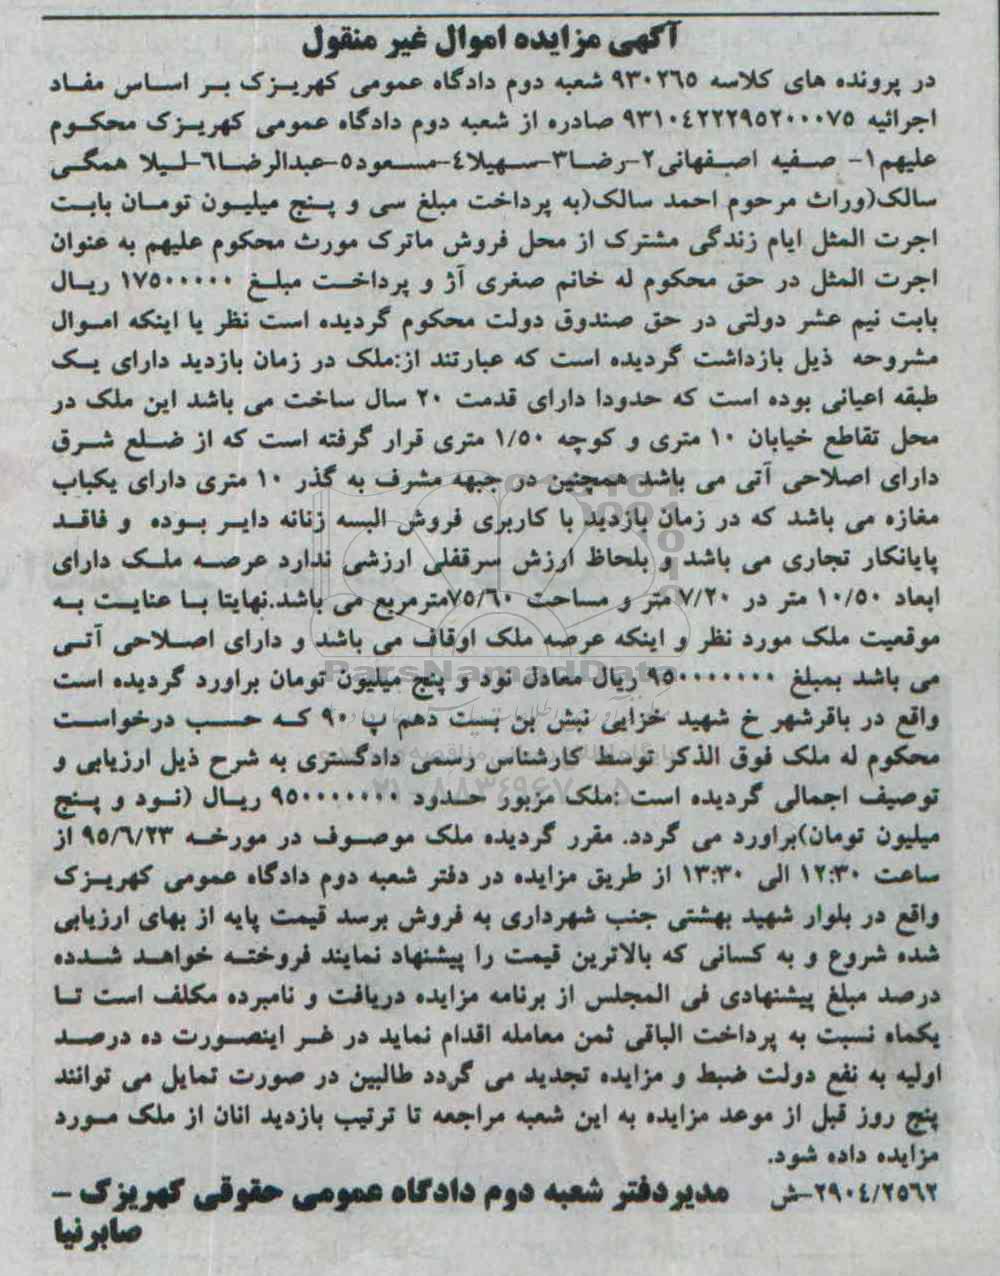 آگهی مزایده اموال غیر منقول
در پرونده های کلاسه ۹۳۰۲۶۵ شعبه دوم دادگاه عمومی کهریزک بر اساس مفاد
اجرائیه ۹۳۱۰۴۲۲۲۹۵۲۰۰۰۷۵ صادره از شعبه دوم دادگاه عمومی کهریزک محکوم
علیهم۱- صفیه اصفهانی۲-رضا۳-سهیلا۴-مسعود۵-عبدالرضا۶-لیلا همگی
سالک(وراث مرحوم احمد سالک(به پرداخت مبلغ سی و پنج میلیون تومان بابت
اجرت المثل ایام زندگی مشترک از محل فروش ماترک مورث محکوم علیهم به عنوان
اجرت المثل در حق محکوم له خانم صغری آژ و پرداخت مبلغ ۱۷۵۰۰۰۰۰ ریال
بابت نیم عشر دولتی در حق صندوق دولت محکوم گردیده است نظر یا اینکه اموال
مشروحه ذیل بازداشت گردیده است که عبارتند از:ملک در زمان بازدید دارای یک
طبقه اعیانی بوده است که حدودا دارای قدمت ۲۰ سال ساخت می باشد این ملک در
محل تقاطع خیابان ۱۰ متری و کوچه ۱/۵۰ متری قرار گرفته است که از ضلع شرق
دارای اصلاحی آتی می باشد همچنین در جبهه مشرف به گذر ۱۰ متری دارای یکباب
مغازه می باشد که در زمان بازدید با کاربری فروش البسه زنانه دایر بوده و فاقد
پایانکار تجاری می باشد و بلحاظ ارزش سرقفلی ارزشی ندارد عرصه ملک دارای
ابعاد ۱۰/۵۰ متر در ۷/۲۰ متر و مساحت ۷۵/۶۰مترمربع می باشد.نهایتا با عنایت به
موقعیت ملک مورد نظر و اینکه عرصه ملک اوقاف می باشد و دارای اصلاحی آتی
می باشد بمبلغ ۹۵۰۰۰۰۰۰۰ ریال معادل نود و پنج میلیون تومان براورد گردیده است
واقع در باقرشهر خ شهید خزایی نبش بن بست دهم پ ۹۰ که حسب درخواست
محکوم له ملک فوق الذکر توسط کارشناس رسمی دادگستری به شرح ذیل ارزیابی و
توصیف اجمالی گردیده است :ملک مزبور حدود ۹۵۰۰۰۰۰۰۰ ریال (نود و پنج
میلیون تومان)براورد می گردد. مقرر گردیده ملک موصوف در مورخه ۹۵/۶/۲۳ از
ساعت ۱۲:۳۰ الی ۱۳:۳۰ از طریق مزایده در دفتر شعبه دوم دادگاه عمومی کهریزک
واقع در بلوار شهید بهشتی جنب شهرداری به فروش برسد قیمت پایه از بهای ارزیابی
شده شروع و به کسانی که بالاترین قیمت را پیشنهاد نمایند فروخته خواهد شدده
درصد مبلغ پیشنهادی فی المجلس از برنامه مزایده دریافت و نامبرده مکلف است تا
یکماه نسبت به پرداخت الباقی ثمن معامله اقدام نماید در غر اینصورت ده درصد
اولیه به نفع دولت ضبط و مزایده تجدید می گردد طالبین در صورت تمایل می توانند
پنج روز قبل از موعد مزایده به این شعبه مراجعه تا ترتیب بازدید انان از ملک مورد
مزایده داده شود.
۲۹۰۴/۲۵۶۲-ش مدیردفتر شعبه دوم دادگاه عمومی حقوقی کهریزک -
صابرنیا
ParsNamadData
۰۲۱-۸۸۳۴۹۶۷۰-۵